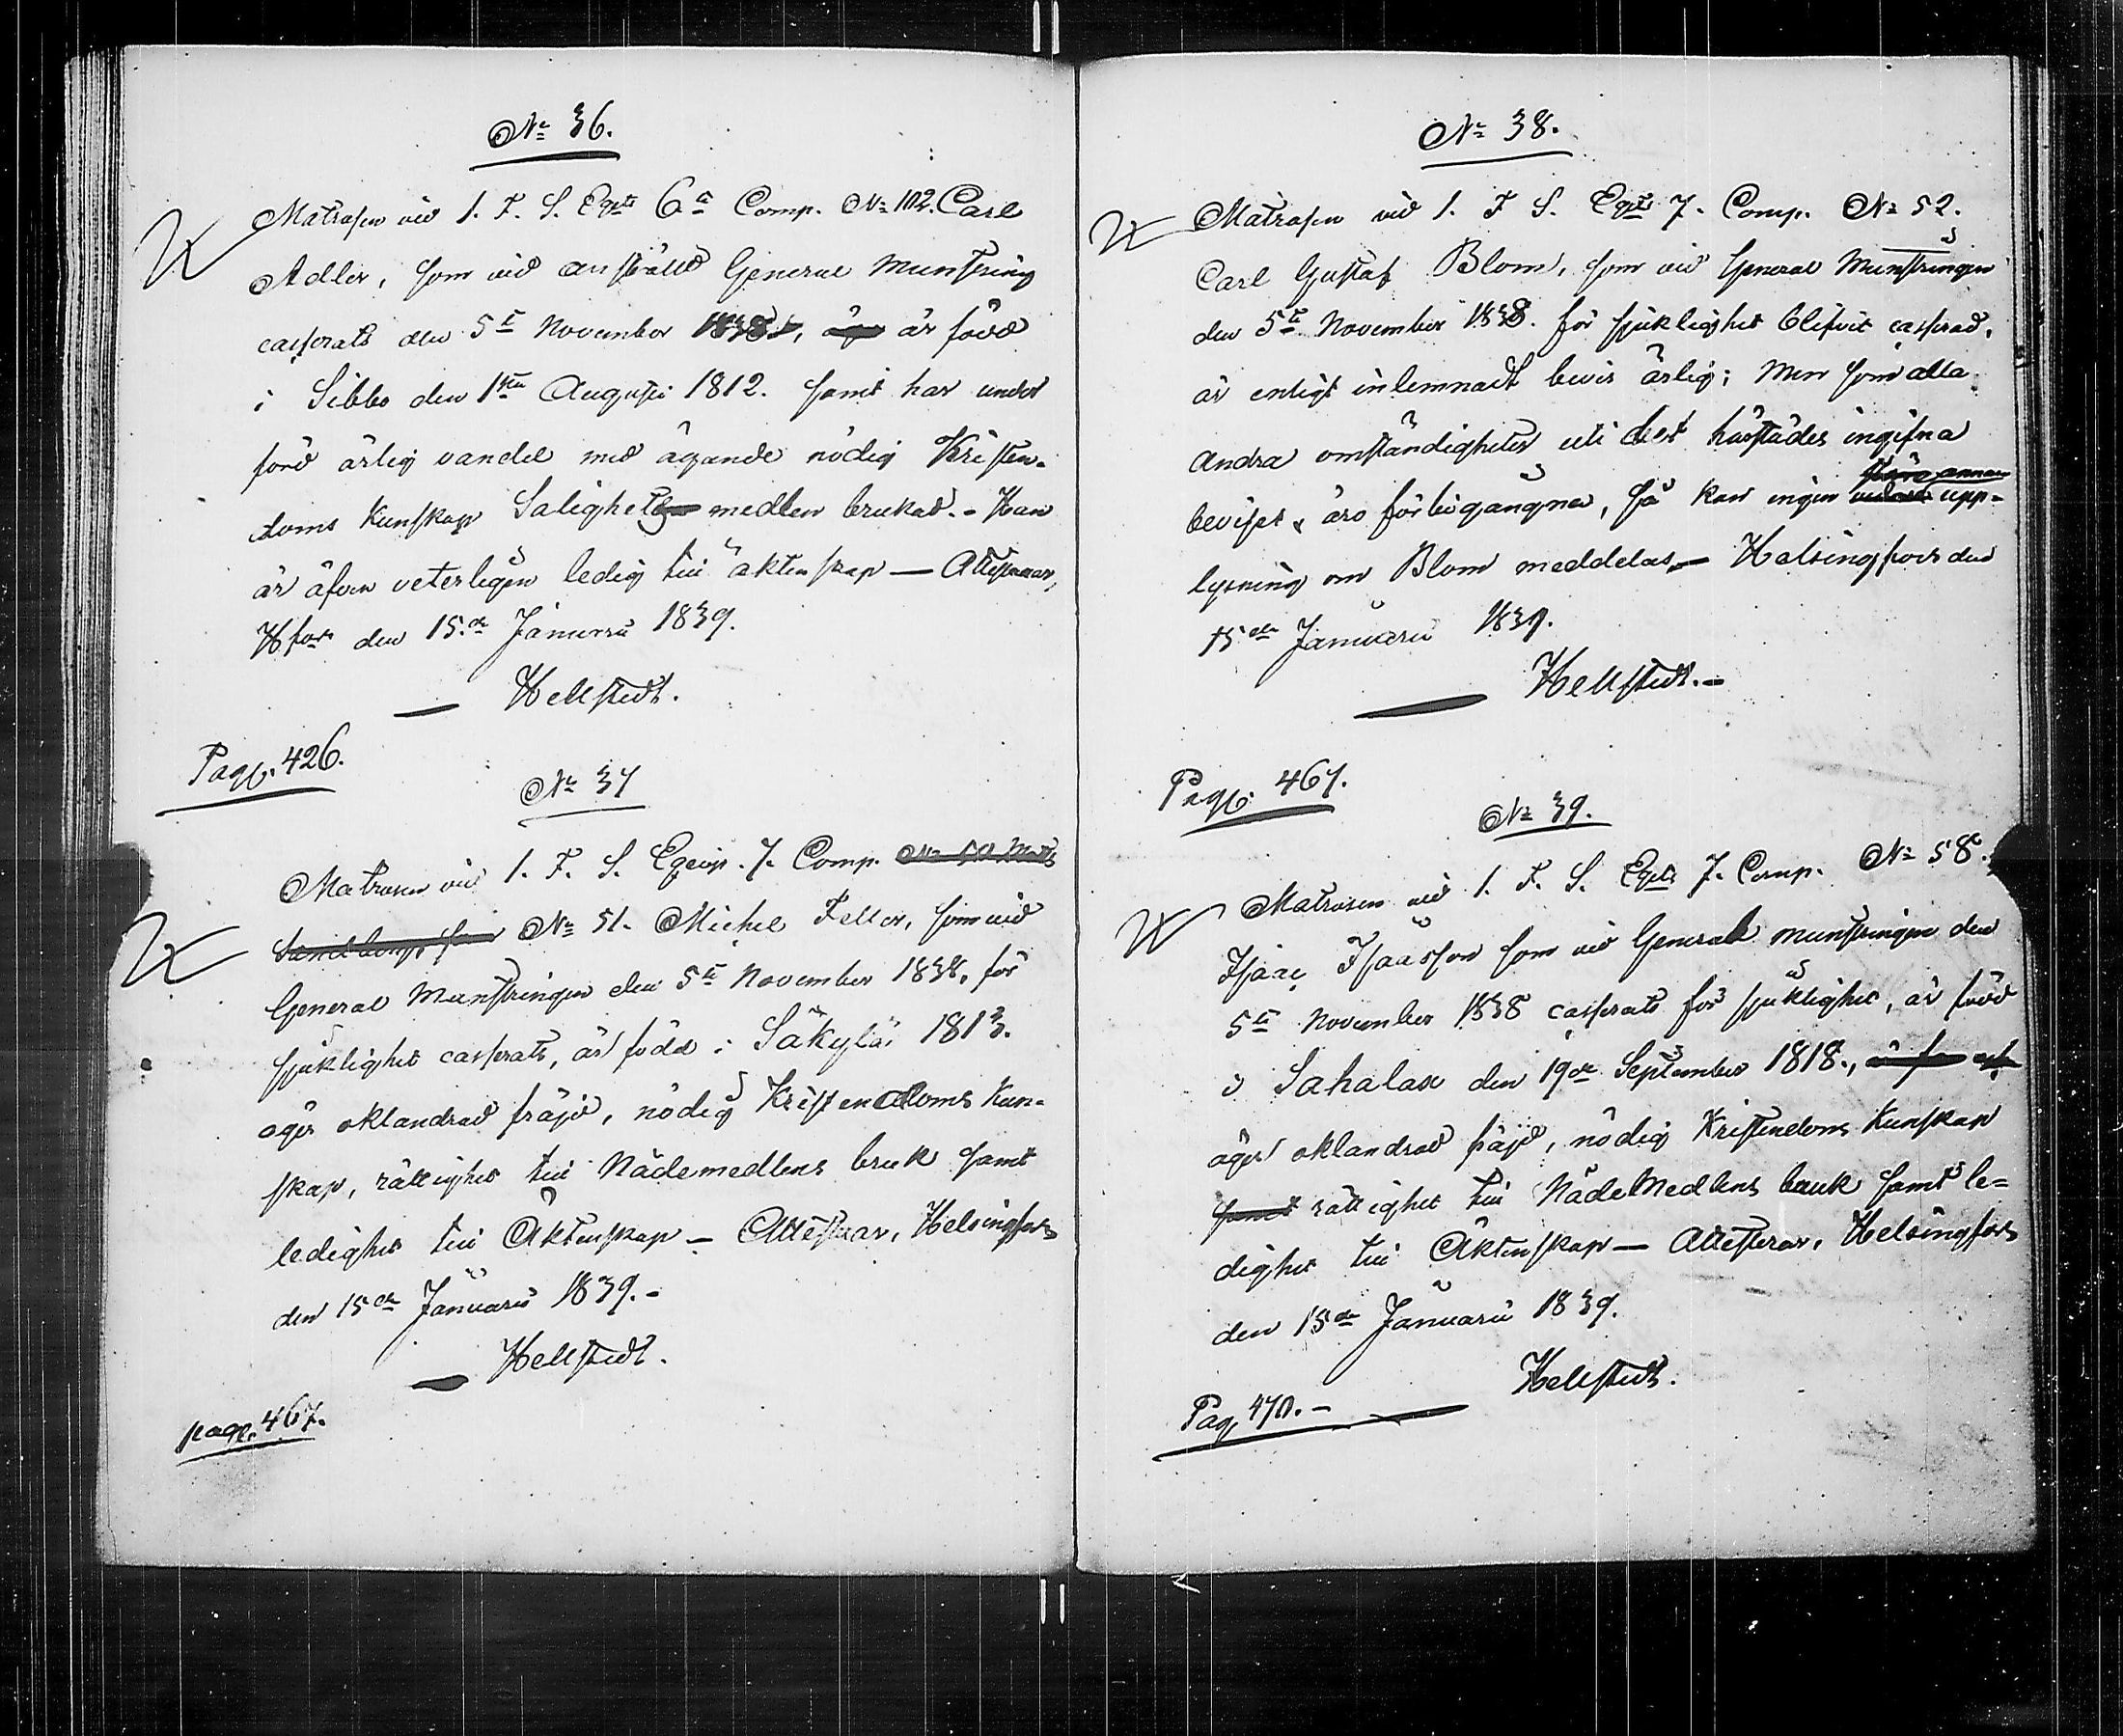 No 36.
Matrosen vid 1. F. S. Eqpts 6te Comp. No 102. Carl
Adler, som vid anstäld General Munstring
casserats den 5te November 1838, är född
i Sibbo den 1sta Augusti 1812. samt har under
förd ärlig vandel med ägande nödig Kristen-
doms Kunskap Salighets medlen brukat. - Han
är äfven veterligen ledig till äktenskap — Attesterar,
Hfors den 15de Januarii 1839.
— Hellstedt.
Pag. 426.
No 37
Matrosen vid 1. F. S. Eqvip. 7. Comp.
No 51. Michel Feller, som vid
General Munstringen den 5te November 1838, för
sjuklighet casserats, är född i Säkylä 1813.
äger oklandrad fräjd, nödig Kristendoms Kun-
skap, rättighet till Nådemedlens bruk samt
ledighet till Äktenskap — Attesterar, Helsingfors
den 15de Januarii 1839. -
— Hellstedt.
pag. 467.
No 38.
Matrosen vid 1. F. S. Eqpts 7. Comp. No 52.
Carl Gustaf Blom, som vid General Munstringen
den 5te November 1838. för sjuklighet blifvit casserad,
är enligt inlemnadt bevis ärlig; Men som alla
andra omständigheter uti det härstädes ingifna
beviset, äro förbigångna, så kan ingen upp-
lysning om Blom meddelas, — Helsingfors den
15de Januarii 1839.
— Hellstedt. -
Pag. 467.
No 39.
Matrosen vid 1. F. S. Eqpts 7. Comp. No 58.
Isaac Isaasson som vid General munstringen den
5te November 1838 casserats för sjuklighet, är född
i Sahalax den 19de September 1818.,
äger oklandrad fräjd, nödig Kristendoms Kunskap
samt rättighet till NådeMedlens bruk samt le-
dighet till Äktenskap — Attesterar, Helsingfors
den 15de Januarii 1839.
Hellstedt.
Pag. 470. -